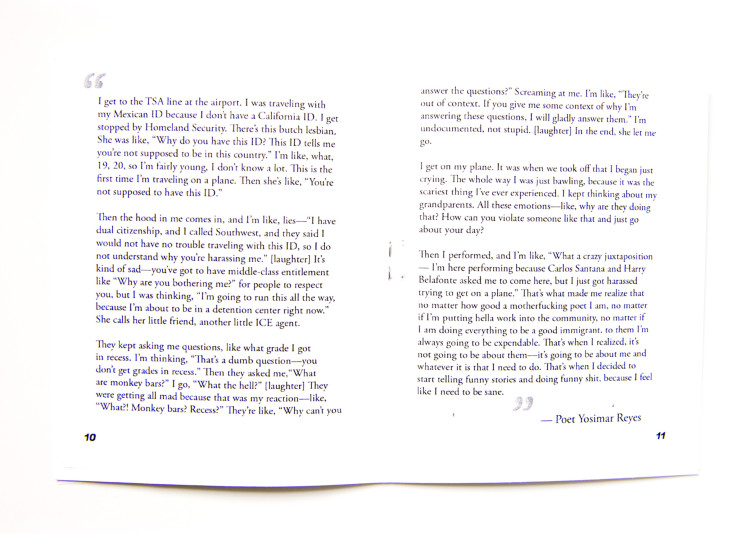 “
I get to the TSA line at the airport. I was traveling with
my Mexican ID because I don’t have a California ID. I get
stopped by Homeland Security. There’s this butch lesbian.
She was like, “Why do you have this ID? This ID tells me
you’re not supposed to be in this country.” I’m like, what,
19, 20, so I’m fairly young, I don’t know a lot. This is the
first time I’m traveling on a plane. Then she’s like, “You’re
not supposed to have this ID.”
Then the hood in me comes in, and I’m like, lies—“I have
dual citizenship, and I called Southwest, and they said I
would not have no trouble traveling with this ID, so I do
not understand why you’re harassing me.” [laughter] It’s
kind of sad—you’ve got to have middle-class entitlement
like “Why are you bothering me?” for people to respect
you, but I was thinking, “I’m going to run this all the way,
because I’m about to be in a detention center right now.”
She calls her little friend, another little ICE agent.
They kept asking me questions, like what grade I got
in recess. I’m thinking, “That’s a dumb question—you
don’t get grades in recess.” Then they asked me,“What
are monkey bars?” I go, “What the hell?” [laughter] They
were getting all mad because that was my reaction—like,
“What?! Monkey bars? Recess?” They’re like, “Why can’t you
10
answer the questions?” Screaming at me. I’m like, “They’re
out of context. If you give me some context of why I’m
answering these questions, I will gladly answer them.” I’m
undocumented, not stupid. [laughter] In the end, she let me
go.
I get on my plane. It was when we took off that I began just
crying. The whole way I was just bawling, because it was the
scariest thing I’ve ever experienced. I kept thinking about my
grandparents. All these emotions—like, why are they doing
that? How can you violate someone like that and just go
about your day?
Then I performed, and I’m like, “What a crazy juxtaposition
— I’m here performing because Carlos Santana and Harry
Belafonte asked me to come here, but I just got harassed
trying to get on a plane.” That’s what made me realize that
no matter how good a motherfucking poet I am, no matter
if I’m putting hella work into the community, no matter if
I am doing everything to be a good immigrant, to them I’m
always going to be expendable. That’s when I realized, it’s
not going to be about them—it’s going to be about me and
whatever it is that I need to do. That’s when I decided to
start telling funny stories and doing funny shit, because I feel
like I need to be sane.
”
— Poet Yosimar Reyes
11